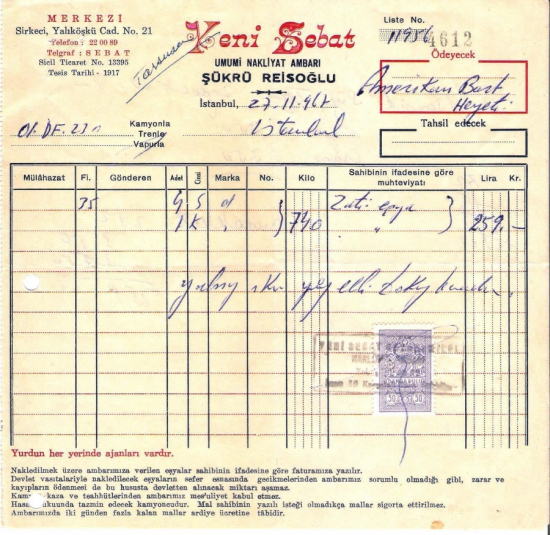 MERKEZİ
Sirkeci, Yalıköşkü Cad. No. 21
Telefon : 22 00 89
Telgraf : SEBAT
Sicil Ticaret No. 13395
Tesis Tarihi - 1917
Yeni Sebat
UMUMİ NAKLİYAT AMBARI
ŞÜKRÜ REİSOĞLU
İstanbul, 27-11-967
Liste No.
4612
Ödeyecek
Amerikan
Heyeti
Tahsil edecek
Kamyonla
Trenle
Vapurla
İstanbul
Mülâhazat Fi. Gönderen Adet Cinsi Marka No. Kilo Sahibinin ifadesine göre muhteviyatı Lira Kr.
35 4 S 740 Zati eşya 259.-
1 K "
YENİ SEBAT
Yurdun her yerinde ajanları vardır.
Nakledilmek üzere ambarımıza verilen eşyalar sahibinin ifadesine göre faturamıza yazılır.
Devlet vasıtalariyle nakledilecek eşyaların sefer esnasında gecikmelerinden ambarımız sorumlu olmadığı gibi, zarar ve
kayıpların ödenmesi de bu hususta devletten alınacak miktarı aşamaz.
kaza ve teahhütlerinden ambarımız mes'uliyet kabul etmez.
tazmin edecek kamyoncudur. Mal sahibinin yazılı isteği olmadıkça mallar sigorta ettirilmez.
Ambarımızda iki günden fazla kalan mallar ardiye ücretine tâbidir.